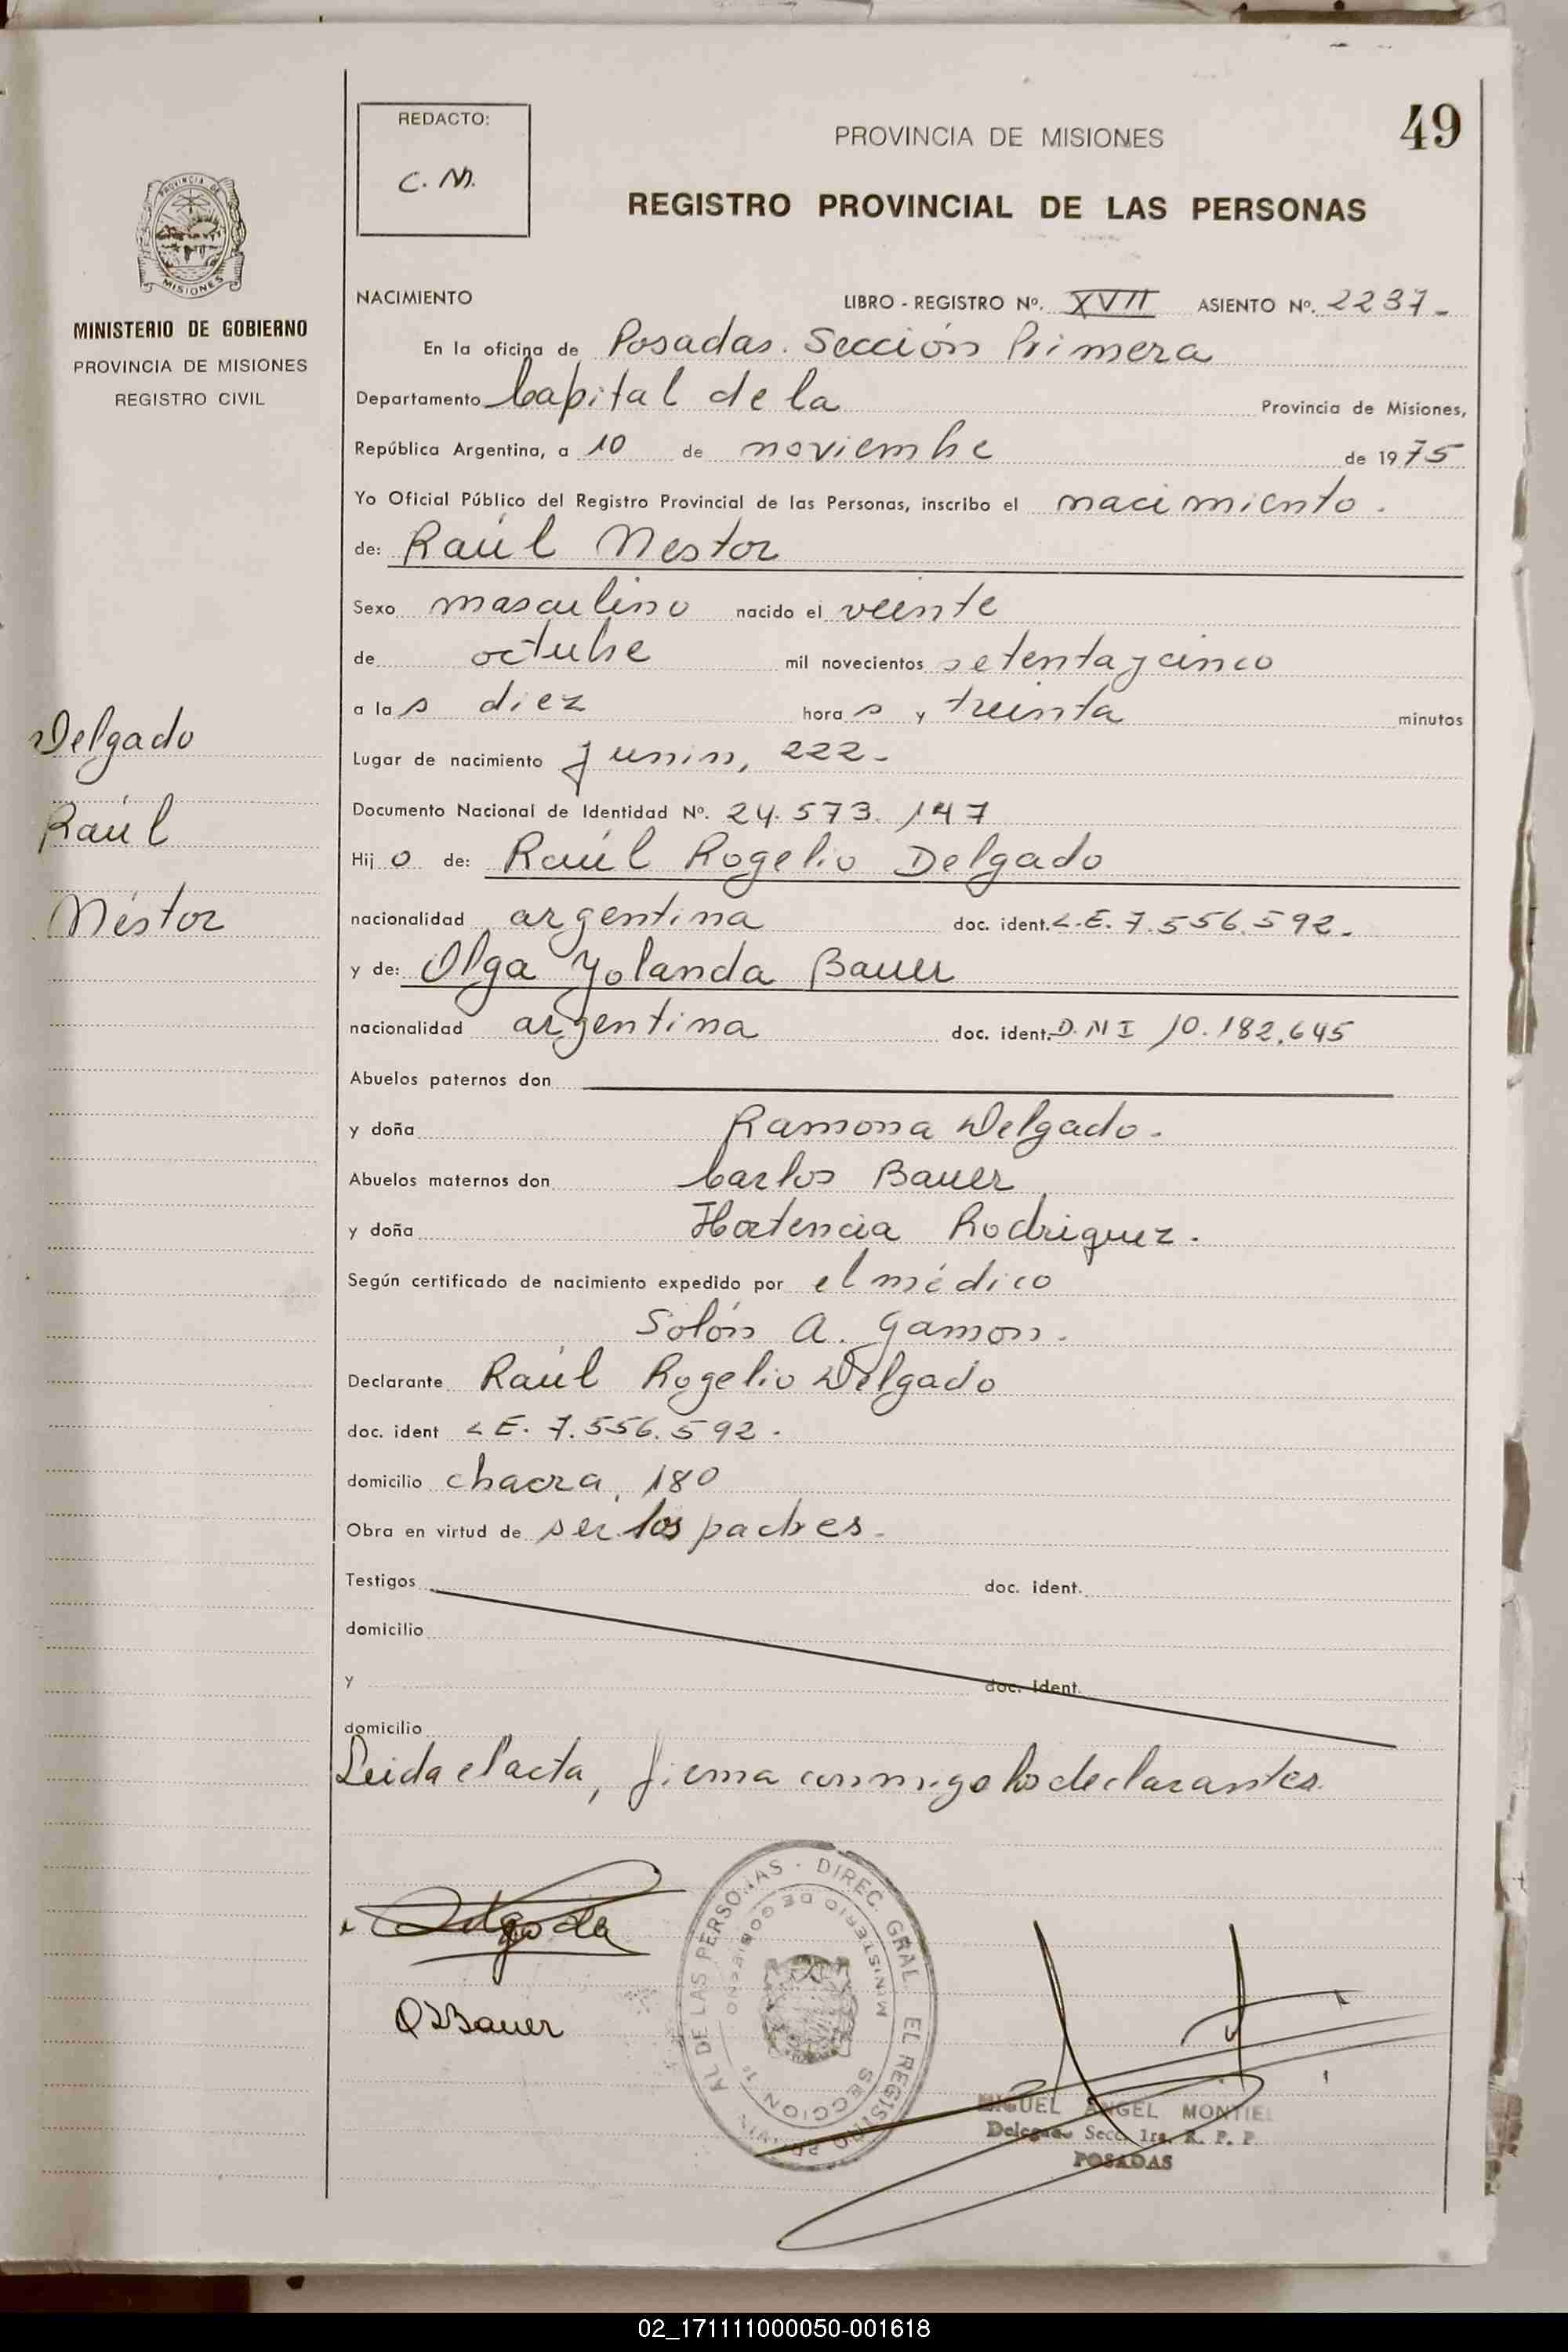 REDACTO:
C. M.
PROVINCIA DE MISIONES
49
REGISTRO PROVINCIAL DE LAS PERSONAS
PROVINCIA DE
MISIONES
MINISTERIO DE GOBIERNO
PROVINCIA DE MISIONES
REGISTRO CIVIL
NACIMIENTO LIBRO - REGISTRO Nº. XVII ASIENTO Nº. 2237-
En la oficina de Posadas. Sección Primera
Departamento Capital de la Provincia de Misiones,
República Argentina, a 10 de noviembre de 1975
Yo Oficial Público del Registro Provincial de las Personas, inscribo el nacimiento.
de: Raúl Nestor
Sexo masculino nacido el veinte
de octubre mil novecientos setenta y cinco
a las diez horas y treinta minutos
Lugar de nacimiento Junin, 222-
Documento Nacional de Identidad Nº. 24.573.147
Hijo de: Raúl Rogelio Delgado
nacionalidad argentina doc. ident. L.E. 7.556.592.
y de: Olga Yolanda Bauer
nacionalidad argentina doc. ident. D.N I 10.182.645
Abuelos paternos don
y doña Ramona Delgado.
Abuelos maternos don Carlos Bauer
y doña Hortencia Rodriguez.
Según certificado de nacimiento expedido por el médico
Solón A. Gamon.
Declarante Raúl Rogelio Delgado
doc. ident L E. 7.556.592.
domicilio chacra, 180
Obra en virtud de ser los padres.
Testigos doc. ident.
domicilio
y doc. ident.
domicilio
Leida el acta, firma conmigo los declarantes.
Delgado
Raúl
Néstor
Delgado
O Y Bauer
DIREC. GRAL. EL REGISTRO AL DE LAS PERSONAS
MINISTERIO DE GOBIERNO
SECCION 1ª
MIGUEL ANGEL MONTIEL
Delegado Secc. 1ra. R. P. P.
POSADAS
02_171111000050-001618